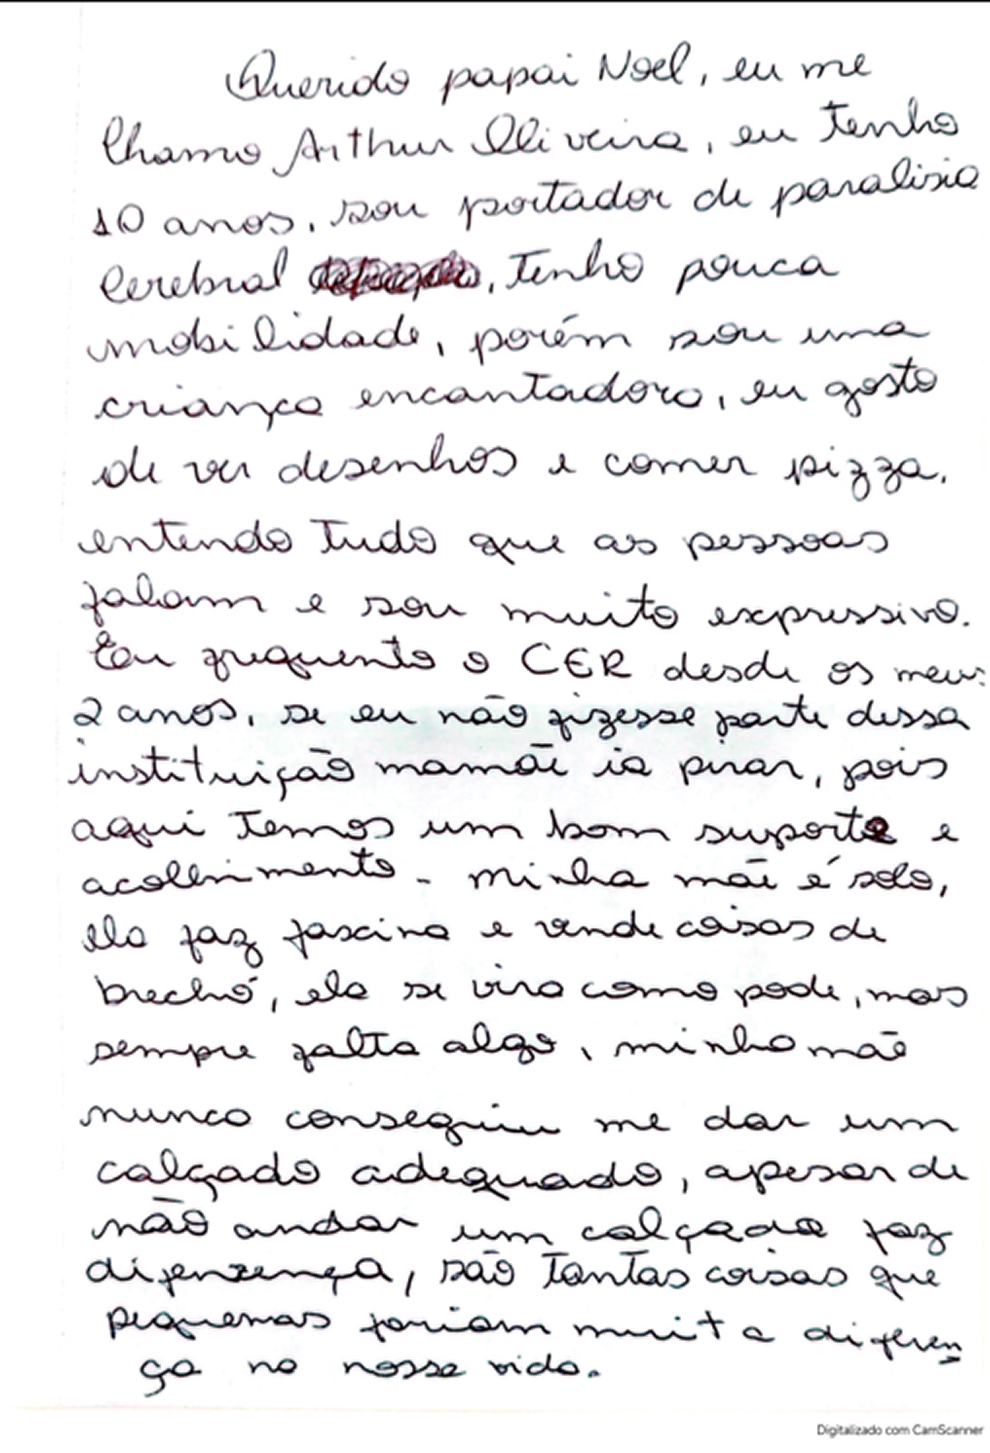 Querido papai Noel, eu me
chamo Arthur Oliveira, eu tenho
10 anos, sou portador de paralisia
cerebral , tenho pouca
mobilidade, porém sou uma
criança encantadora, eu gosto
de ver desenhos e comer pizza,
entendo tudo que as pessoas
falam e sou muito expressivo.
Eu frequento o CER desde os meus
2 anos, se eu não fizesse parte dessa
instituição mamãe ia pirar, pois
aqui temos um bom suporte e
acolhimento - minha mãe é solo,
ela faz faxina e vende coisas de
brechó, ela se vira como pode, mas
sempre falta algo, minha mãe
nunca conseguiu me dar um
calçado adequado, apesar de
não andar um calçado faz
diferença, são tantas coisas que
pequenas fariam muita diferen
ça na nossa vida.
Digitalizado com CamScanner